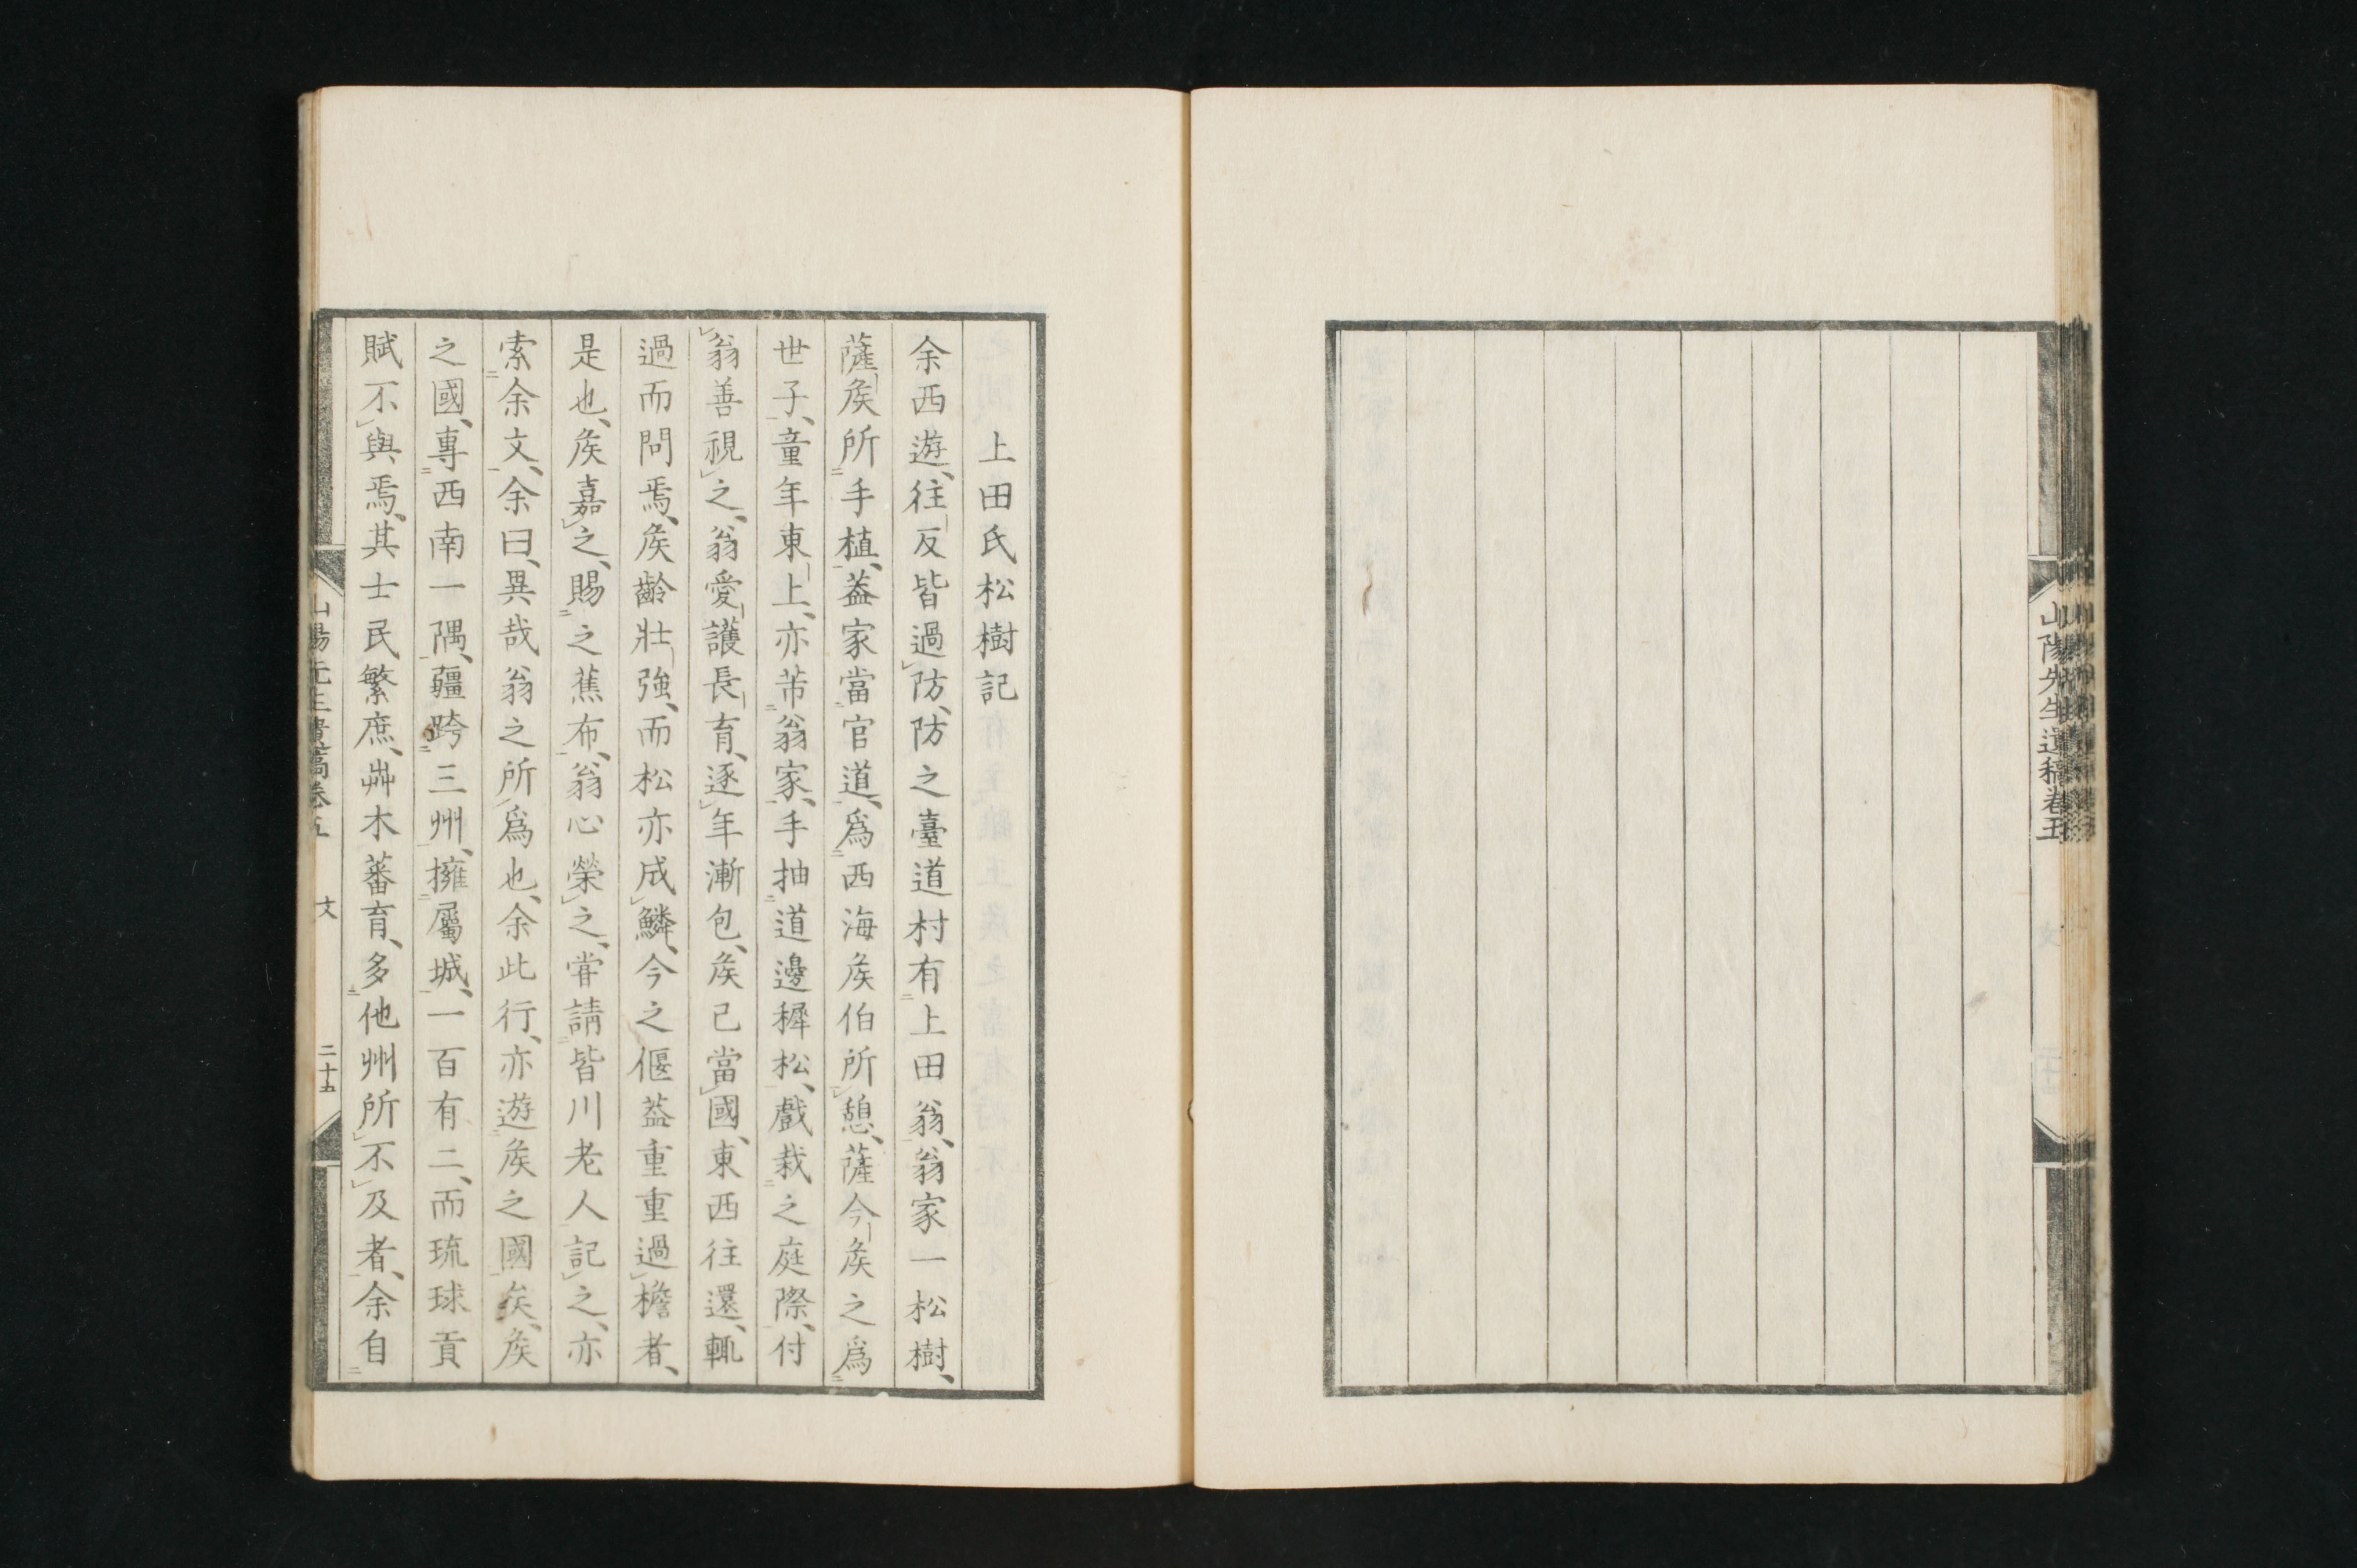 山陽先生遺稿卷五
上田氏松樹記
余西遊、往反皆過防、防之臺道村有上田翁、翁家一松樹、
薩矦所手植、蓋家當官道、爲西海矦伯所憩、薩今矦之爲
世子、童年東上、亦芾翁家、手抽道邊穉松、戲栽之庭際、付
翁善視之、翁愛護長育、逐年漸包、矦已當國、東西往還、輒
過而問焉、矦齡壯強、而松亦成鱗、今之偃蓋重重過檐者、
是也、矦嘉之、賜之蕉布、翁心榮之、甞請皆川老人記之、亦
索余文、余曰、異哉翁之所爲也、余此行、亦遊矦之國矣、矦
之國、專西南一隅、疆跨三州、擁屬城、一百有二、而琉球貢
賦不與焉、其士民繁庶、艸木蕃育、多他州所不及者、余自
山陽先生遺稿卷五 文 二十五